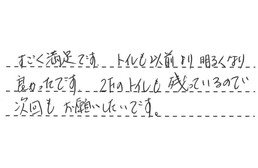 すごく満足です トイレも以前より明るくなり
良かったです 2Fのトイレも残っているので
次回もお願いしたいです。